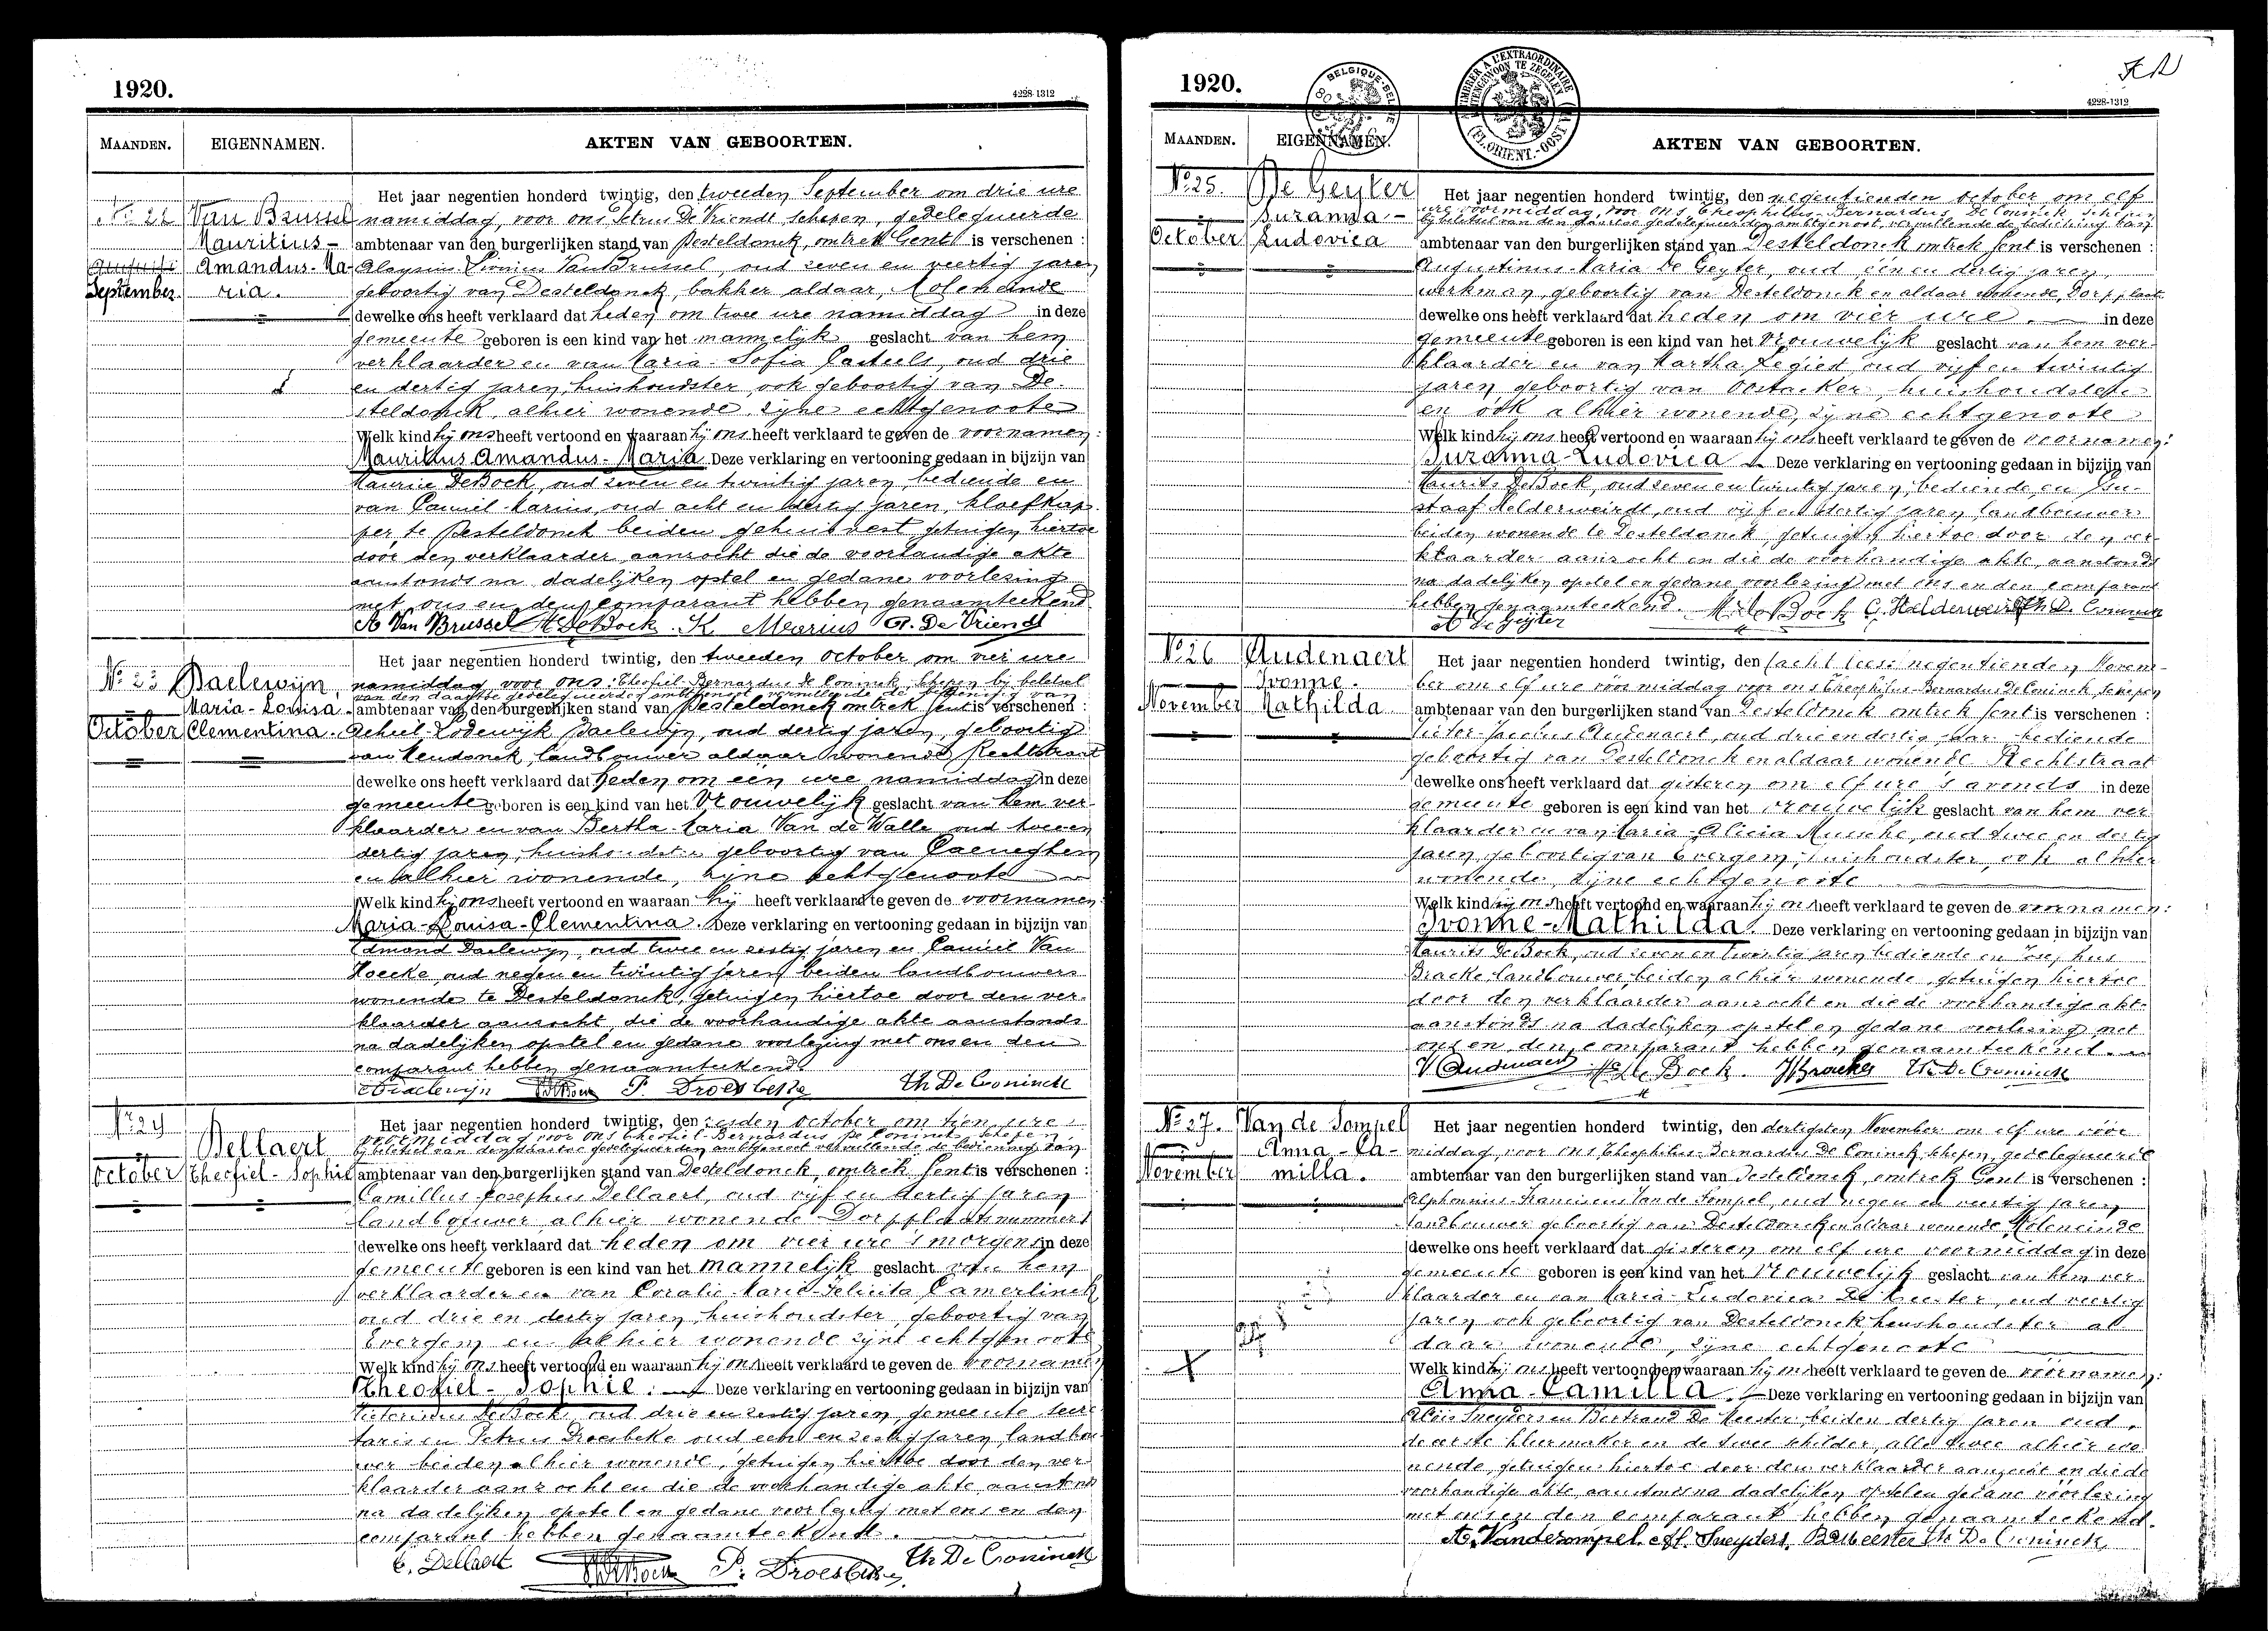 1920.
4228-1312
MAANDEN.
EIGENNAMEN.
AKTEN VAN GEBOORTEN.
No 22
Van Brussel
Mauritius-
Amandus-Ma-
ria.
September.
Het jaar negentien honderd twintig, den tweeden September om drie ure
namiddag, voor ons Petrus De Vriendt schepen, gedelegueerde
ambtenaar van den burgerlijken stand van Desteldonck, omtrek Gent is verschenen :
Aloysius Van Brussel, oud zeven en veertig jaren
geboortig van Desteldonck, bakker aldaar, Moleneinde
dewelke ons heeft verklaard dat heden om twee ure namiddag in deze
gemeente geboren is een kind van het mannelijk geslacht van hem
verklaarder en van Maria-Sofia Casteels, oud drie
en dertig jaren, huishoudster, ook geboortig van De-
steldonck, alhier wonende, zijne echtgenoote
Welk kind hij ons heeft vertoond en waaraan hij ons heeft verklaard te geven de voornamen:
Mauritius Amandus-Maria Deze verklaring en vertooning gedaan in bijzijn van
Maurice De Bock, oud zeven en twintig jaren, bediende en
van Camiel Marius, oud acht en dertig jaren, kloefkap-
per te Desteldonck beiden gehuisvest getuigen hiertoe
door den verklaarder aanzocht die de voorhandige akte
aanstonds na dadelijken opstel en gedane voorlezing
met ons en den comparant hebben genaamteekend
A Van Brussel M DeBock K Marius P. De Vriendt
No 23
Baelewijn,
Maria-Louisa
October
Clementina.
Het jaar negentien honderd twintig, den tweeden October om vier ure
namiddag voor ons Theofiel-Bernardus De Coninck schepen bij belet
ambtenaar van den burgerlijken stand van Desteldonck omtrek Gent is verschenen :
Achiel-Lodewijk Baelewijn, oud dertig jaren, geboortig
van Mendonck, landbouwer aldaar wonende Rechtstraat
dewelke ons heeft verklaard dat heden om een ure namiddag in deze
gemeente geboren is een kind van het Vrouwelijk geslacht van hem ver-
klaarder en van Bertha Maria Van de Walle oud twee en
dertig jaren, huishoudster geboortig van Caeneghem
en alhier wonende, zijne echtgenoote
Welk kind hij ons heeft vertoond en waaraan hij heeft verklaard te geven de voornamen
Maria-Louisa-Clementina. Deze verklaring en vertooning gedaan in bijzijn van
Edmond Baelewijn, oud twee en zestig jaren en Camiel Van
Hoecke, oud negen en twintig jaren, beiden landbouwers
wonende te Desteldonck, getuigen hiertoe door den ver-
klaarder aanzocht, die de voorhandige akte aanstonds
na dadelijken opstel en gedane voorlezing met ons en den
comparant hebben genaamteekend
Baelewijn P. Droesbeke Th De Coninck
No 24
Dellaert
October
Theofiel-Sophie
Het jaar negentien honderd twintig, den zesden October om tien ure
voormiddag voor ons Theofiel-Bernardus De Coninck schepen,
ambtenaar van den burgerlijken stand van Desteldonck, omtrek Gent is verschenen :
Camillus Josephus Dellaert, oud vijf en dertig jaren
landbouwer alhier wonende Dorpplaats nummer 1
dewelke ons heeft verklaard dat heden om vier ure 's morgens in deze
gemeente geboren is een kind van het mannelijk geslacht van hem
verklaarder en van Coralie-Marie-Felicita Camerlinck
oud drie en dertig jaren, huishoudster, geboortig van
Evergem en alhier wonende zijne echtgenoote
Welk kind hij ons heeft vertoond en waaraan hij ons heeft verklaard te geven de voornamen
Theofiel-Sophie. Deze verklaring en vertooning gedaan in bijzijn van
De Bock, oud drie en zestig jaren, gemeente secre-
taris en Petrus Droesbeke oud een en zestig jaren, landbou-
wer beiden alhier wonende, getuigen hiertoe door den ver-
klaarder aanzocht en die de voorhandige akte aanstonds
na dadelijken opstel en gedane voorlezing met ons en den
comparant hebben genaamteekend.
C. Dellaert P. Droesbeke Th De Coninck
1920.
4228-1312
BELGIQUE-BELGIE
TIMBRER A L'EXTRAORDINAIRE
BUITENGEWOON TE ZEGELEN
(FL. ORIENT.-OOST VL.)
MAANDEN.
EIGENNAMEN.
AKTEN VAN GEBOORTEN.
No 25.
De Geyter
Suzanna-
October
Ludovica
Het jaar negentien honderd twintig, den negentienden october om elf
ure voormiddag, voor ons Theophilus-Bernardus De Coninck schepen
ambtenaar van den burgerlijken stand van Desteldonck omtrek Gent is verschenen :
Augustinus-Maria De Geyter, oud een en dertig jaren,
werkman, geboortig van Desteldonck en aldaar wonende, Dorpplaats
dewelke ons heeft verklaard dat heden om vier ure. in deze
gemeente geboren is een kind van het Vrouwelijk geslacht van hem ver-
klaarder en van Martha Regied oud vijf en twintig
jaren geboortig van Oostacker, huishoudster
en ook alhier wonende, zijne echtgenoote
Welk kind hij ons heeft vertoond en waaraan hij ons heeft verklaard te geven de voornamen:
Suzanna-Ludovica Deze verklaring en vertooning gedaan in bijzijn van
Maurits De Bock, oud zeven en twintig jaren, bediende, en Gu-
staaf Helderweirdt, oud vijf en dertig jaren, landbouwer
beiden wonende te Desteldonck, getuigen hiertoe door den ver-
klaarder aanzocht en die de voorhandige akte, aanstonds
na dadelijken opstel en gedane voorlezing met ons en den comparant
hebben genaamteekend. M. De Bock G. Helderweirdt Th. D. Coninck
A De Geyter
No 26
Audenaert
Ivonne.
November
Mathilda
Het jaar negentien honderd twintig, den (acht lees) negentienden Novem-
ber om elf ure voormiddag voor ons Theophilus-Bernardus De Coninck schepen
ambtenaar van den burgerlijken stand van Desteldonck omtrek Gent is verschenen :
Victor-Jacobus Audenaert, oud drie en dertig jaar bediende
geboortig van Desteldonck en aldaar wonende Rechtstraat
dewelke ons heeft verklaard dat gisteren om elf ure 's avonds in deze
gemeente geboren is een kind van het vrouwelijk geslacht van hem ver-
klaarder en van Maria-Alicia Mussche, oud twee en dertig
jaren, geboortig van Evergem, huishoudster, ook alhier
wonende, zijne echtgenoote
Welk kind hij ons heeft vertoond en waaraan hij ons heeft verklaard te geven de voornamen:
Ivonne-Mathilda. Deze verklaring en vertooning gedaan in bijzijn van
Maurits De Bock, oud zeven en twintig jaren bediende en Josephus
Bracke landbouwer beiden alhier wonende, getuigen hiertoe
door den verklaarder aanzocht en die de voorhandige akte
aanstonds na dadelijken opstel en gedane voorlezing met
ons en den comparant hebben genaamteekend.
V Audenaert De Bock. J Bracke Th De Coninck
No 27.
Van de Sompel
Anna-Ca-
November
milla.
Het jaar negentien honderd twintig, den dertigsten November om elf ure voor
middag, voor ons Theophilus-Bernardus De Coninck schepen, gedelegueerde
ambtenaar van den burgerlijken stand van Desteldonck, omtrek Gent is verschenen :
Alphonsius-Franciscus Van de Sompel, oud negen en veertig jaren
landbouwer geboortig van Desteldonck en aldaar wonende Moleneinde
dewelke ons heeft verklaard dat gisteren om elf ure voormiddag in deze
gemeente geboren is een kind van het Vrouwelijk geslacht van hem ver-
klaarder en van Maria-Ludovica De Meester, oud veertig
jaren ook geboortig van Desteldonck huishoudster al-
daar wonende, zijne echtgenoote
Welk kind hij ons heeft vertoond en waaraan hij ons heeft verklaard te geven de voornamen:
Anna-Camilla. Deze verklaring en vertooning gedaan in bijzijn van
Aloïs Sneyders en Bertrand De Meester, beiden dertig jaren oud,
de eerste kleermaker en de twee schilder, alle twee alhier wo-
nende, getuigen hiertoe door den verklaarder aanzocht en die de
voorhandige akte, aanstonds na dadelijken opstel en gedane voorlezing
met ons en den comparant hebben genaamteekend.
A. Vandesompel. Alf. Sneyders. B De Meester Th De Coninck